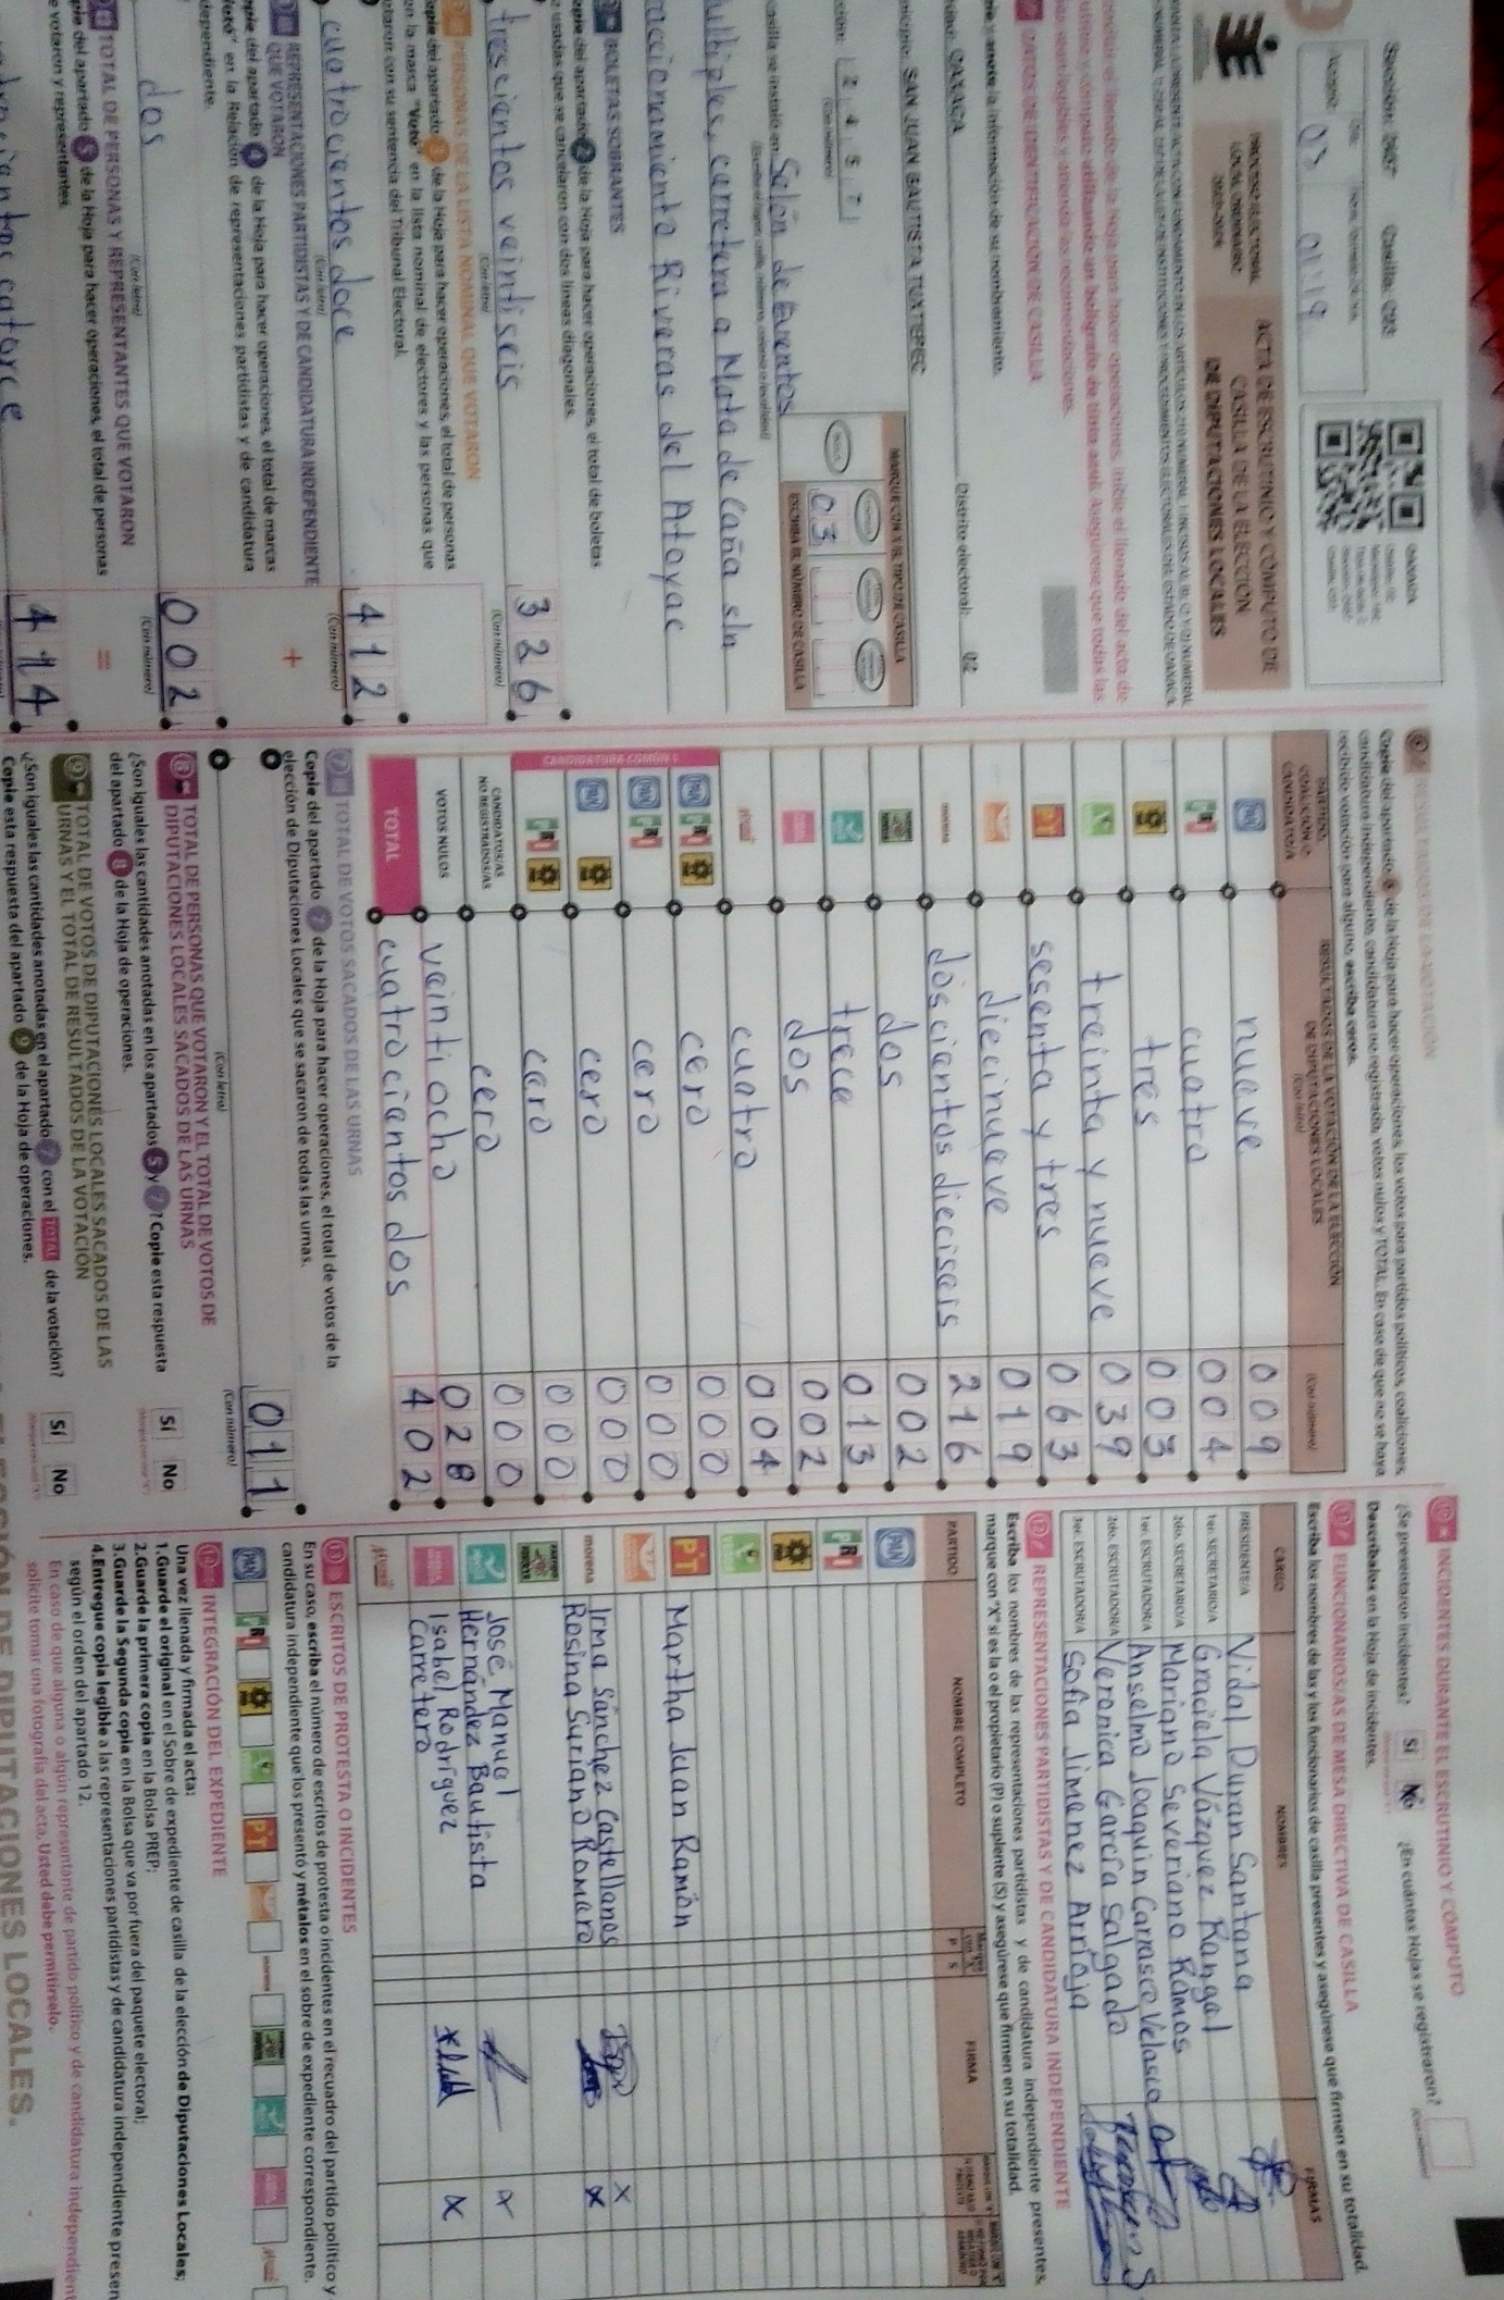 Sección: 2457 Casilla: C03
03 01:19
OAXACA
PROCESO ELECTORAL
LOCAL ORDINARIO
2023-2024
ACTA DE ESCRUTINIO Y CÓMPUTO DE
CASILLA DE LA ELECCIÓN
DE DIPUTACIONES LOCALES
DATOS DE IDENTIFICACIÓN DE CASILLA
OAXACA Distrito electoral: 02
SAN JUAN BAUTISTA TUXTEPEC
2 4 5 7
(Con número)
MARQUE CON X EL TIPO DE CASILLA
ESCRIBA EL NÚMERO DE CASILLA
03
casilla se instaló en: Salón de Eventos
Multiples, carretera a Mata de Caña s/n
Fraccionamiento Riveras del Atoyac
BOLETAS SOBRANTES
Copie del apartado 2 de la Hoja para hacer operaciones, el total de boletas
usadas que se cancelaron con dos líneas diagonales.
trescientos veintiseis 326
(Con letra) (Con número)
PERSONAS DE LA LISTA NOMINAL QUE VOTARON
Copie del apartado 3 de la Hoja para hacer operaciones, el total de personas
con la marca "Votó" en la lista nominal de electores y las personas que
votaron con su sentencia del Tribunal Electoral.
cuatrocientos doce 412
(Con letra) (Con número)
REPRESENTACIONES PARTIDISTAS Y DE CANDIDATURA INDEPENDIENTE
QUE VOTARON
Copie del apartado 4 de la Hoja para hacer operaciones, el total de marcas
"Votó" en la Relación de representaciones partidistas y de candidatura
independiente.
dos 002
(Con letra) (Con número)
TOTAL DE PERSONAS Y REPRESENTANTES QUE VOTARON
Copie del apartado 5 de la Hoja para hacer operaciones, el total de personas
que votaron y representantes.
cuatrocientos catorce 414
RESULTADOS DE LA VOTACIÓN
Copie del apartado 8 de la Hoja para hacer operaciones, los votos para partidos políticos, coaliciones,
candidatura independiente, candidatura no registrada, votos nulos y TOTAL. En caso de que no se haya
recibido votación para alguno, escriba ceros.
PARTIDO, COALICIÓN O CANDIDATO/A
RESULTADOS DE LA VOTACIÓN DE LA ELECCIÓN
DE DIPUTACIONES LOCALES
(Con letra) (Con número)
PAN nueve 009
PRI cuatro 004
PRD tres 003
treinta y nueve 039
PT sesenta y tres 063
diecinueve 019
morena doscientos dieciseis 216
dos 002
trece 013
dos 002
cuatro 004
CANDIDATURA COMÚN 1
PAN PRI PRD cero 000
PAN PRI cero 000
PAN PRD cero 000
PRI PRD cero 000
CANDIDATOS/AS NO REGISTRADOS/AS cero 000
VOTOS NULOS veintiocho 028
TOTAL cuatrocientos dos 402
TOTAL DE VOTOS SACADOS DE LAS URNAS
Copie del apartado 7 de la Hoja para hacer operaciones, el total de votos de la
elección de Diputaciones Locales que se sacaron de todas las urnas.
011
(Con letra) (Con número)
TOTAL DE PERSONAS QUE VOTARON Y EL TOTAL DE VOTOS DE
DIPUTACIONES LOCALES SACADOS DE LAS URNAS
¿Son iguales las cantidades anotadas en los apartados 5 y 7? Copie esta respuesta
del apartado 8 de la Hoja de operaciones.
Sí No
TOTAL DE VOTOS DE DIPUTACIONES LOCALES SACADOS DE LAS
URNAS Y EL TOTAL DE RESULTADOS DE LA VOTACIÓN
¿Son iguales las cantidades anotadas en el apartado 7 con el TOTAL de la votación?
Copie esta respuesta del apartado 9 de la Hoja de operaciones.
Sí No
INCIDENTES DURANTE EL ESCRUTINIO Y CÓMPUTO
¿Se presentaron incidentes? Sí No ¿En cuántas Hojas se registraron?
Descríbalos en la Hoja de incidentes.
FUNCIONARIOS/AS DE MESA DIRECTIVA DE CASILLA
Escriba los nombres de las y los funcionarios de casilla presentes y asegúrese que firmen en su totalidad.
CARGO NOMBRES FIRMAS
PRESIDENTE/A Vidal Duran Santana
1er. SECRETARIO/A Graciela Vázquez Rangel
2do. SECRETARIO/A Mariano Severiano Ramos
1er. ESCRUTADOR/A Anselmo Joaquin Carrasco Velasco
2do. ESCRUTADOR/A Veronica García Salgado
3er. ESCRUTADOR/A Sofia Jimenez Arrioja
REPRESENTACIONES PARTIDISTAS Y DE CANDIDATURA INDEPENDIENTE
Escriba los nombres de las representaciones partidistas y de candidatura independiente presentes,
marque con "X" si es la o el propietario (P) o suplente (S) y asegúrese que firmen en su totalidad.
PARTIDO NOMBRE COMPLETO P S FIRMA
PAN
PRI
PRD
PT Martha Juan Ramón
morena Irma Sánchez Castellanos X
Rosina Suriano Romero X
José Manuel
Hernández Bautista X
Isabel Rodríguez
Carretero X
ESCRITOS DE PROTESTA O INCIDENTES
En su caso, escriba el número de escritos de protesta o incidentes en el recuadro del partido político y
candidatura independiente que los presentó y métalos en el sobre de expediente correspondiente.
PAN PRI PRD PT
INTEGRACIÓN DEL EXPEDIENTE
Una vez llenada y firmada el acta:
1.Guarde el original en el Sobre de expediente de casilla de la elección de Diputaciones Locales;
2.Guarde la primera copia en la Bolsa PREP;
3.Guarde la Segunda copia en la Bolsa que va por fuera del paquete electoral;
4.Entregue copia legible a las representaciones partidistas y de candidatura independiente presen
según el orden del apartado 12.
En caso de que alguna o algún representante de partido político y de candidatura independient
solicite tomar una fotografía del acta, Usted debe permitírselo.
DIPUTACIONES LOCALES.